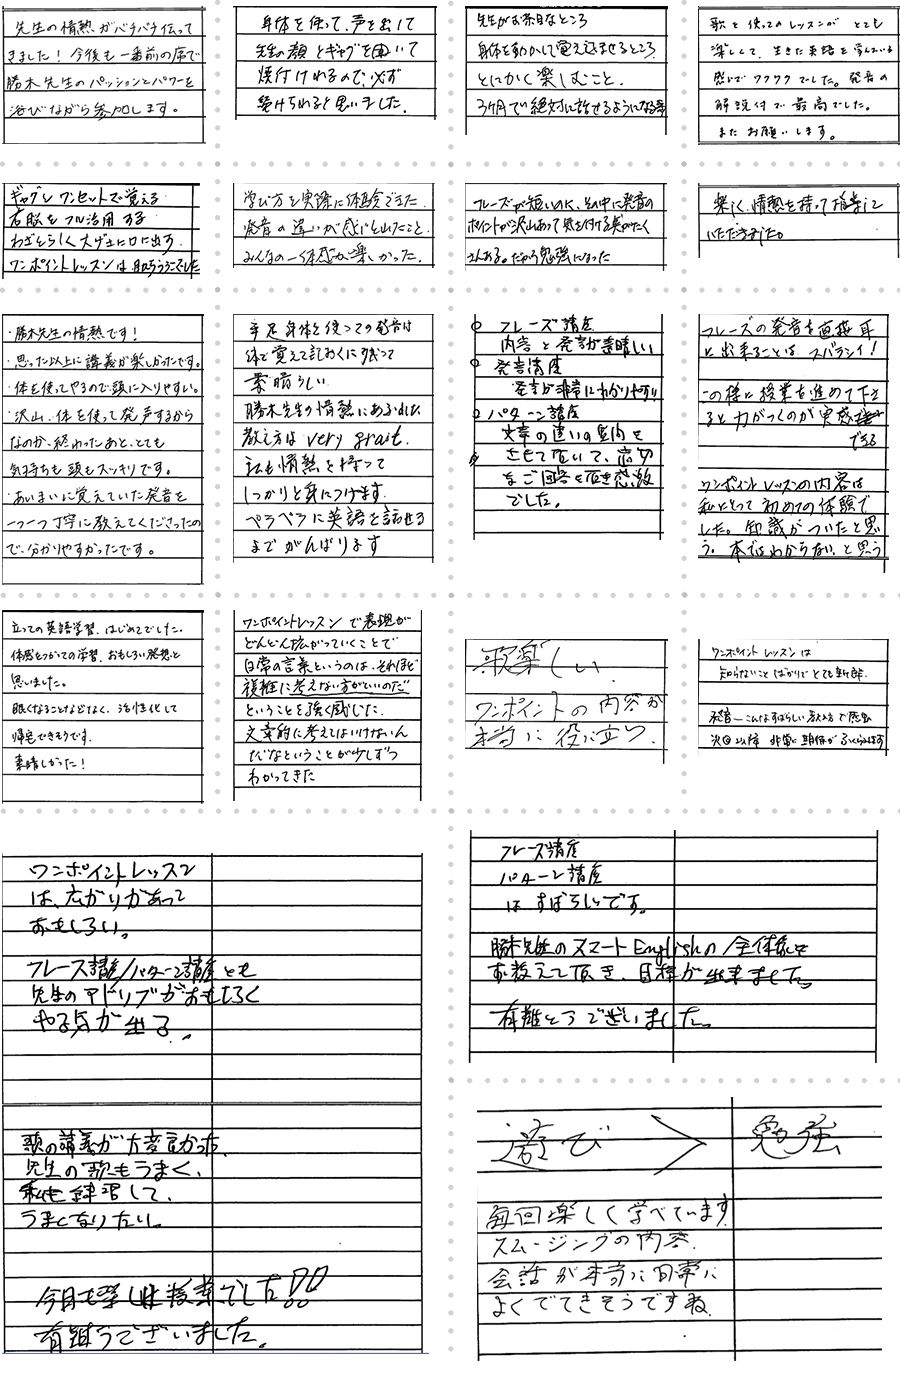 先生の情熱がバチバチ伝って
きました！今後も一番前の席で
勝木先生のパッションとパワーを
浴びながら参加します。
身体を使って、声を出して
先生の顔とギャグを聞いて
焼付けれるので、必ず
続けられると思いました。
先生がお茶目なところ
身体を動かして覚え込ませるところ
とにかく楽しむこと。
3ヶ月で絶対に話せるようになる事
歌を使ってのレッスンが とても
楽しくて、生きた英語を学んでいる
感じでワクワクでした。発音の
解説付で最高でした。
またお願いします。
ギャグとワンセットで覚える
右脳をフル活用する
わざとらしく大ゲサに口に出す
ワンポイントレッスンは
学び方を実際に体験できた
発音の違いが感じとれたこと
みんなの一体感が楽しかった。
フレーズが短いのに、その中に発音の
ポイントが沢山あって気を付ける事がたく
さんある。だから勉強になった
楽しく、情熱を持って指導して
いただきました。
・勝木先生の情熱です！
・思った以上に講義が楽しかったです。
・体を使ってやるので頭に入りやすい。
・沢山、体を使って発声するから
なのか、終わったあと、とても
気持ちも頭もスッキリです。
・あいまいに覚えていた発音を
一つ一つ丁寧に教えてくださったの
で、分かりやすかったです。
手足身体を使っての発音は
体で覚えて記おくに残って
素晴らしい
勝木先生の情熱にあふれた
教え方は very grait.
私も情熱を持って
しっかりと身につけます
ペラペラに英語を話せる
までがんばります
フレーズ講座
内容と発音が素晴しい
発音講座
発音が非常にわかりやすい
パターン講座
文章の違いの質問を
させて頂いて、
をご回答を頂き感激
でした。
フレーズの発音を直接耳
に出来ることは スバラシイ！
この様に授業を進めて下さ
ると力がつくのが実感
できる
ワンポイントレッスンの内容は
私にとって初めての体験で
した。知識がついたと思
う。本ではわからないと思う
立っての英語学習、はじめてでした。
体感をつかっての学習、おもしろい発想と
思いました。
眠くなることなどなく、活性化して
帰宅できそうです。
素晴しかった！
ワンポイントレッスンで表現が
どんどん広がっていくことで
日常の言葉というのは、それほど
複雑に考えない方がいいのだ
ということを強く感じた。
文章的に考えてはいけないん
だなということが少しずつ
わかってきた
歌楽しい
ワンポイントの内容が
本当に役に立つ、
ワンポイントレッスンは
知らないことばかりでとても新鮮
発音－こんなすばらしい教え方で
次回以降 非常に期待がふくらみます
ワンポイントレッスン
は、広がりがあって
おもしろい。
フレーズ講座/パターン講座とも
先生のアドリブがおもしろく
やる気が出る。
歌の講義が大変良かった
先生の歌もうまく、
私も練習して、
うまくなりたい。
今日も楽しい授業でした!!
有難うございました。
フレーズ講座
パターン講座
は すばらしいです。
勝木先生のスマートEnglishの全体像を
お教えして頂き、目標が出来ました。
有難とうございました。
遊び ＞ 勉強
毎回楽しく学べています
スムージングの内容、
会話が本当に日常に
よくでてきそうですね